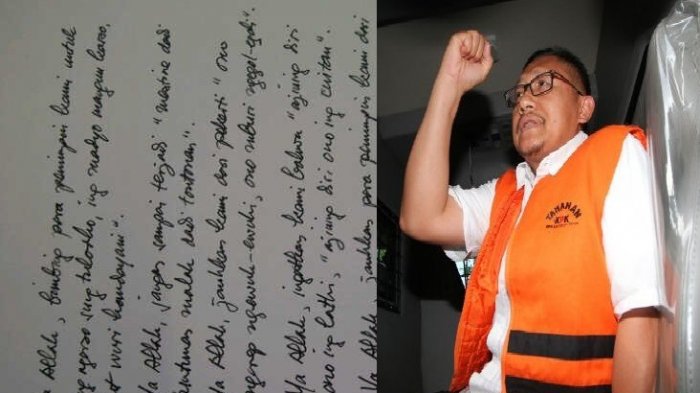 a Allah, bimbing para pemimpin kami untuk
ng ngarso sung tulodho, ing madyo mangun karso,
t wuri handayani".
Ya Allah, jangan sampai terjadi "mestine dadi
tuntunan malah dadi tontonan".
Ya Allah, jauhkan kami dari pekerti "ono
ngarep ono mburi
Ya Allah, ingatkan kami bahwa "ajining diri
ono ing lathi, "ajining diri ono ing cuitan".
Ya Allah jauhkan para pemimpin kami dari
TAHANAN
KPK